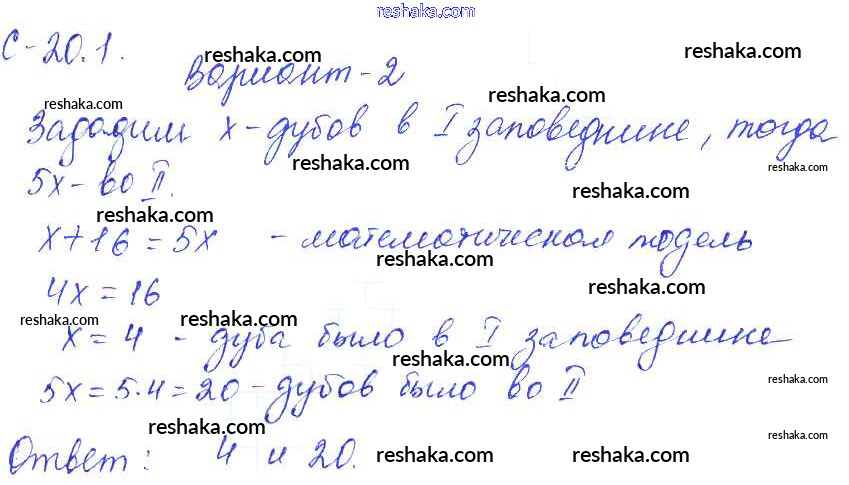 reshaka.com
С-20.1.
reshaka.com reshaka.com
Вариант-2
reshaka.com reshaka.com
Зададим x-дубов в I заповеднике, тогда
reshaka.com reshaka.com
5x-во II.
reshaka.com reshaka.com
x+16=5x - математическая модель
reshaka.com
4x=16
reshaka.com
reshaka.com reshaka.com
x=4 - дуба было в I заповеднике
reshaka.com
5x=5·4=20-дубов было во II
reshaka.com
reshaka.com reshaka.com
reshaka.com
Ответ: 4 и 20.
reshaka.com reshaka.com reshaka.com